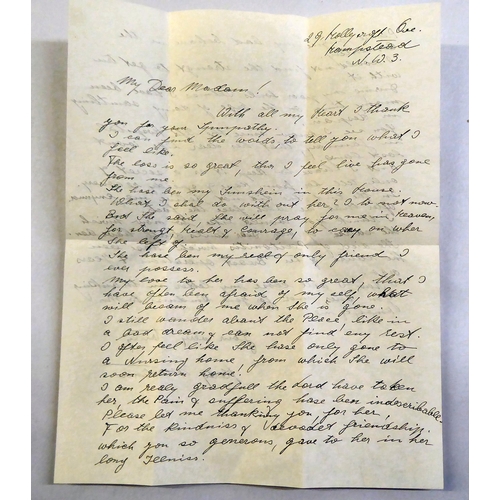 29 Kellycroft Ave.
Hampstead
N.W.3.
My Dear Madam!
With all my Heart I thank
you for your Sympathy.
I can find the words, to tell you what I
feel like.
The loss is so great, that I feel live has gone
from me
She hase ben my Sunshein in this House.
What I shal do with out her? I do not now.
But She said, She will pray for me in Heaven,
for strengt, Healt & Courage, to cary on wher
She left of
She hase ben my real & only friend I
ever possess.
My love to her has ben so great, that I
have often ben afraid of my self, what
will becam of me when she's gone.
I still wonder abaut the Place, like in
a bad dreamy can not find eny rest.
I often feel like She hase only gone to
a Nursing home, from which She will
soon return home!
I am realy gradfull the Lord have taken
her, the Pain & suffering hase ben indescribable.
Please let me thanking you, for her,
For the kindniss & devodet friendship.
which you so generons, gave to her in her
long Illniss.